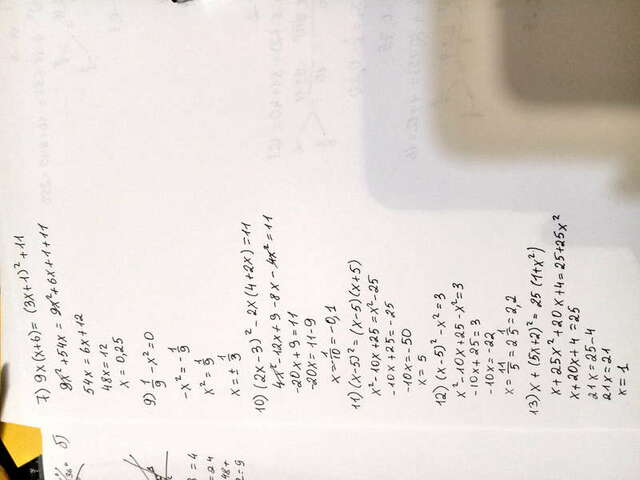 7) 9x(x+6) = (3x+1)² + 11
9x² + 54x = 9x² + 6x + 1 + 11
54x = 6x + 12
48x = 12
x = 0,25
9) 1/9 - x² = 0
-x² = -1/9
x² = 1/9
x = ± 1/3
10) (2x-3)² - 2x(4+2x) = 11
4x² - 12x + 9 - 8x - 4x² = 11
-20x + 9 = 11
-20x = 11 - 9
x = -1/10 = -0,1
11) (x-5)² = (x-5)(x+5)
x² - 10x + 25 = x² - 25
-10x + 25 = -25
-10x = -50
x = 5
12) (x-5)² - x² = 3
x² - 10x + 25 - x² = 3
-10x + 25 = 3
-10x = -22
x = 11/5 = 2 1/5 = 2,2
13) x + (5x+2)² = 25(1+x²)
x + 25x² + 20x + 4 = 25 + 25x²
x + 20x + 4 = 25
21x = 25 - 4
21x = 21
x = 1